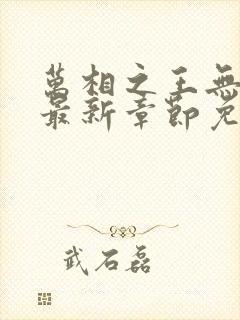 萬相之王無
最新章節免
武石磊